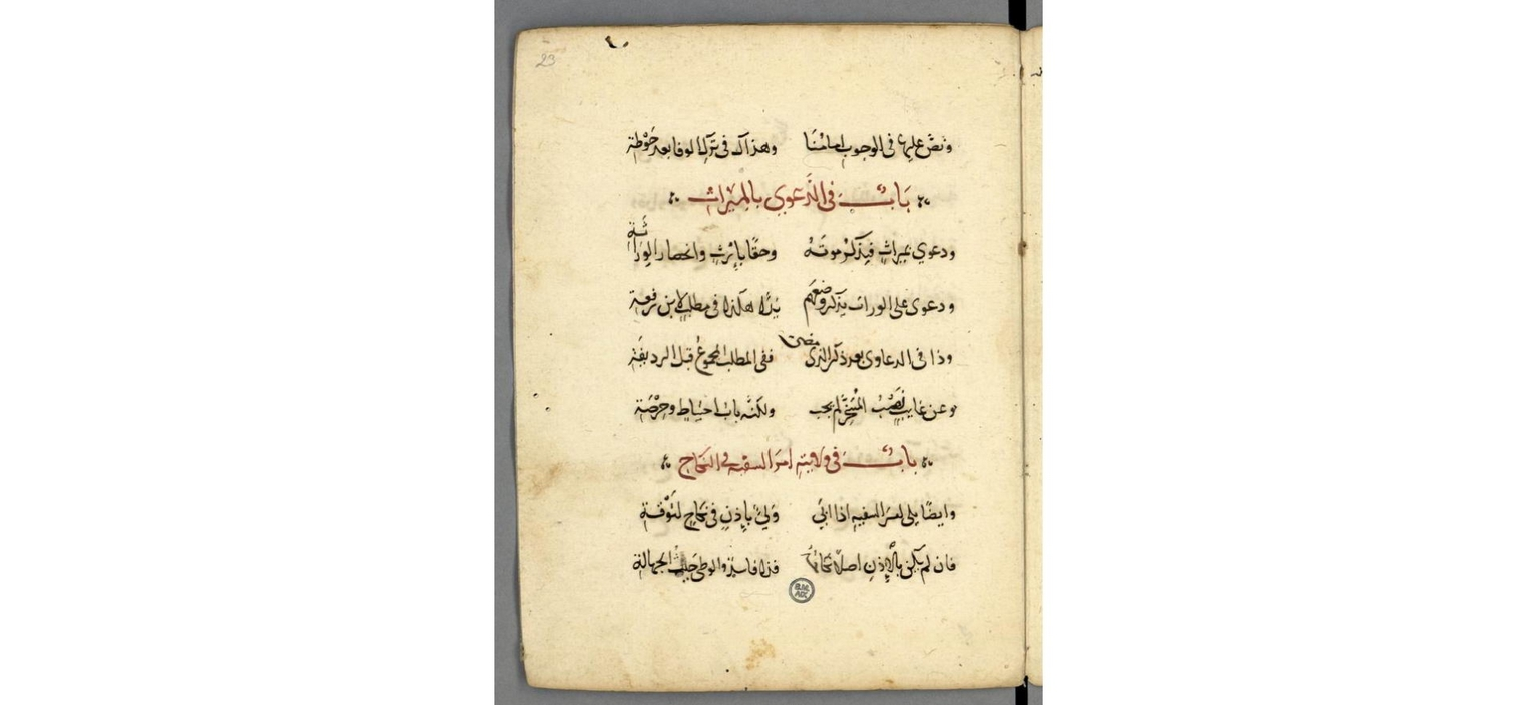 23
ونص عليها في الوجوب امامُنَا وهذاك في ترك الوفا بعد حَوْطة
بَابٌ في الدَّعوي بالميراث
ودعوي بميراثٍ فيذكرُ موتَهُ وحقًا بإرثٍ وانحصار الوِرَاثَةِ
ودعوى على الوراث يذكر وضعهم يدًا هكذا في مطلبٍ لابن رفعة
وذا في الدعاوى بعد ذكر الذي مضى ففى المطلب المجموعُ قبل الرد
وعن غايبٍ نَصْبُ المُسَخَّر لم يجب ولكنّه باب احتياط
بابٌ في ولاية امر السفيه في النكاح
وايضًا يلى السفيه اذا اتي وَلِيٌ بإذنٍ في نكاحٍ
فان لم يكن بالإذنِ اصلًا فذا فاسدٌ والوطئ الجهالة
B.M. AIX